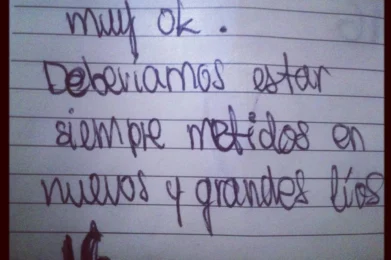 muy ok.
Deberíamos estar
siempre metidos en
nuevos y grandes líos